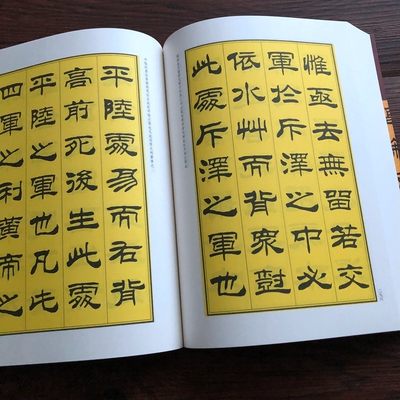 惟亟去無留若交
軍於斥澤之中必
依水艸而背衆樹
此處斥澤之軍也
平陸處易而右背
高前死後生此處
平陸之軍也凡此
四軍之利黃帝之